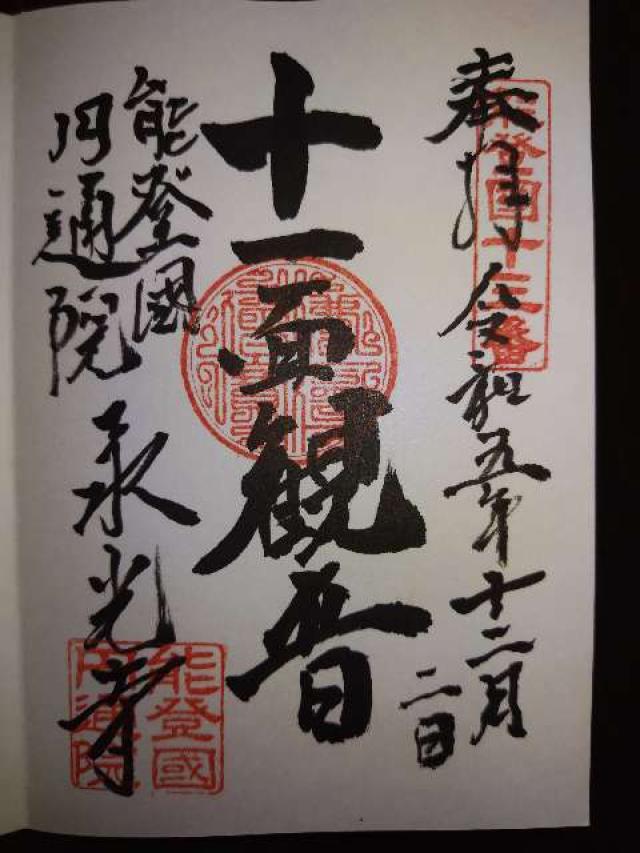 奉拝 令和五年十二月
二日
能登国十三番
十一面観音
能登國
円通院 永光寺
能登國
円通院